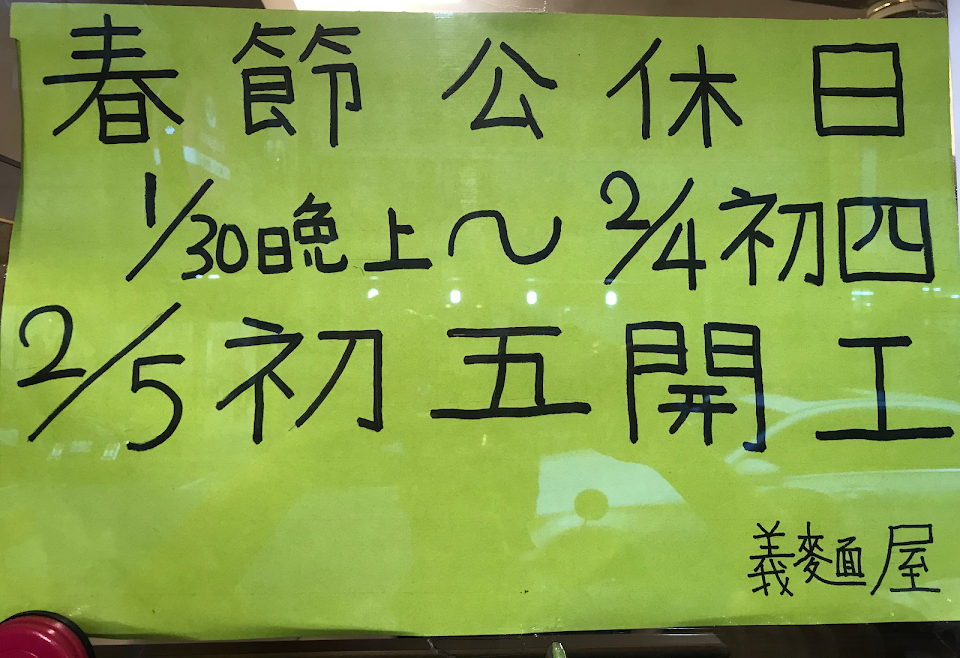 春節公休日
1/30晚上～2/4初四
2/5初五開工
義麵屋